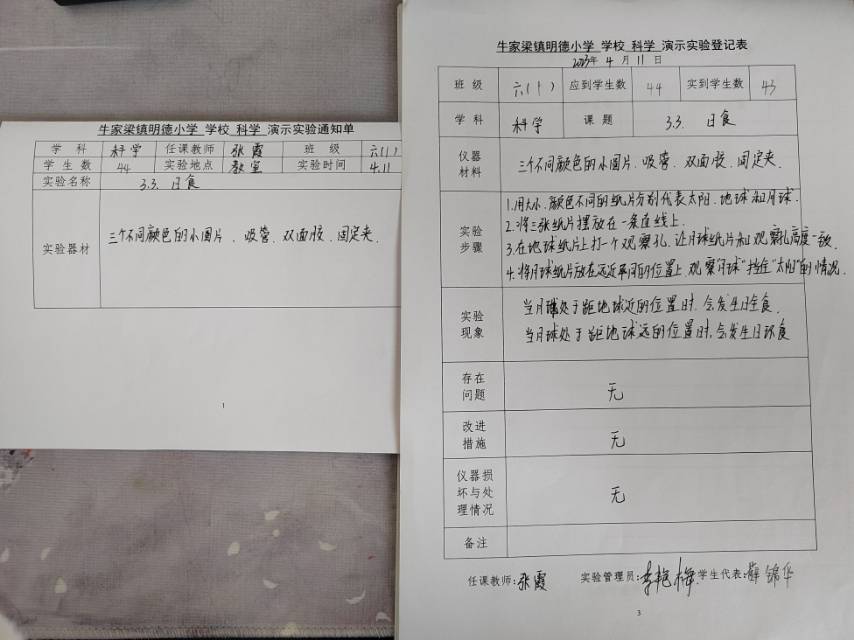 牛家梁镇明德小学 学校 科学 演示实验通知单
学 科 科学 任课教师 张霞 班 级 六(1)
学生数 44 实验地点 教室 实验时间 4.11
实验名称 3.3. 日食
实验器材 三个不同颜色的小圆片、吸管、双面胶、固定夹.
1
牛家梁镇明德小学 学校 科学 演示实验登记表
2023年 4 月 11 日
班 级 六(1) 应到学生数 44 实到学生数 43
学 科 科学 课 题 3.3. 日食
仪器材料 三个不同颜色的小圆片、吸管、双面胶、固定夹.
实验步骤
1.用大小、颜色不同的纸片分别代表太阳、地球和月球.
2.将三张纸片摆放在一条直线上.
3.在地球纸片上打一个观察孔,让月球纸片和观察孔高度一致.
4.将月球纸片放在远近不同的位置上,观察"月球"挡住"太阳"的情况.
实验现象
当月球处于距地球近的位置时,会发生日全食.
当月球处于距地球远的位置时,会发生日环食
存在问题 无
改进措施 无
仪器损坏与处理情况 无
备注
任课教师:张霞 实验管理员:李艳梅 学生代表:薛锦华
3